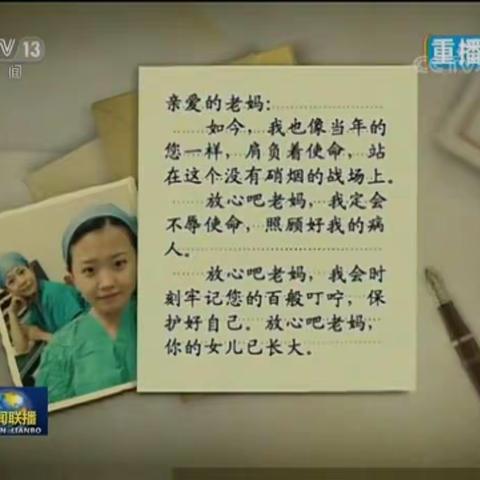 TV 13
闻
重播
CCTV
亲爱的老妈:
如今,我也像当年的
您一样,肩负着使命,站
在这个没有硝烟的战场上。
放心吧老妈,我定会
不辱使命,照顾好我的病
人。
放心吧老妈,我会时
刻牢记您的百般叮咛,保
护好自己。放心吧老妈,
你的女儿已长大。
闻联播
N-LIANBO